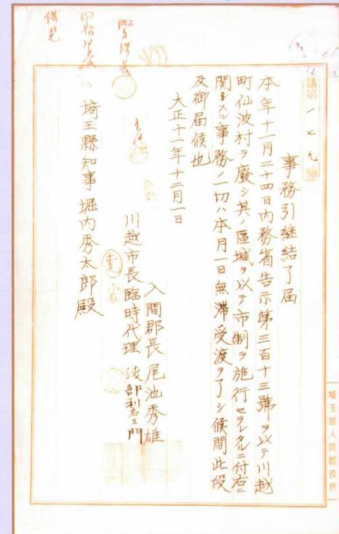 事務引継結了届
本年十一月二十四日内務省告示第三百十三號ヲ以テ川越
町仙波村ヲ廢シ其ノ區域ヲ以テ市制ヲ施行セラレタルニ付右ニ
関スル事務ノ一切ハ本月一日無滞受渡ヲ了シ候間此段
及御届候也
大正十一年十二月一日
入間郡長 尾池秀雄
川越市長臨時代理
埼玉縣知事 堀内秀太郎殿